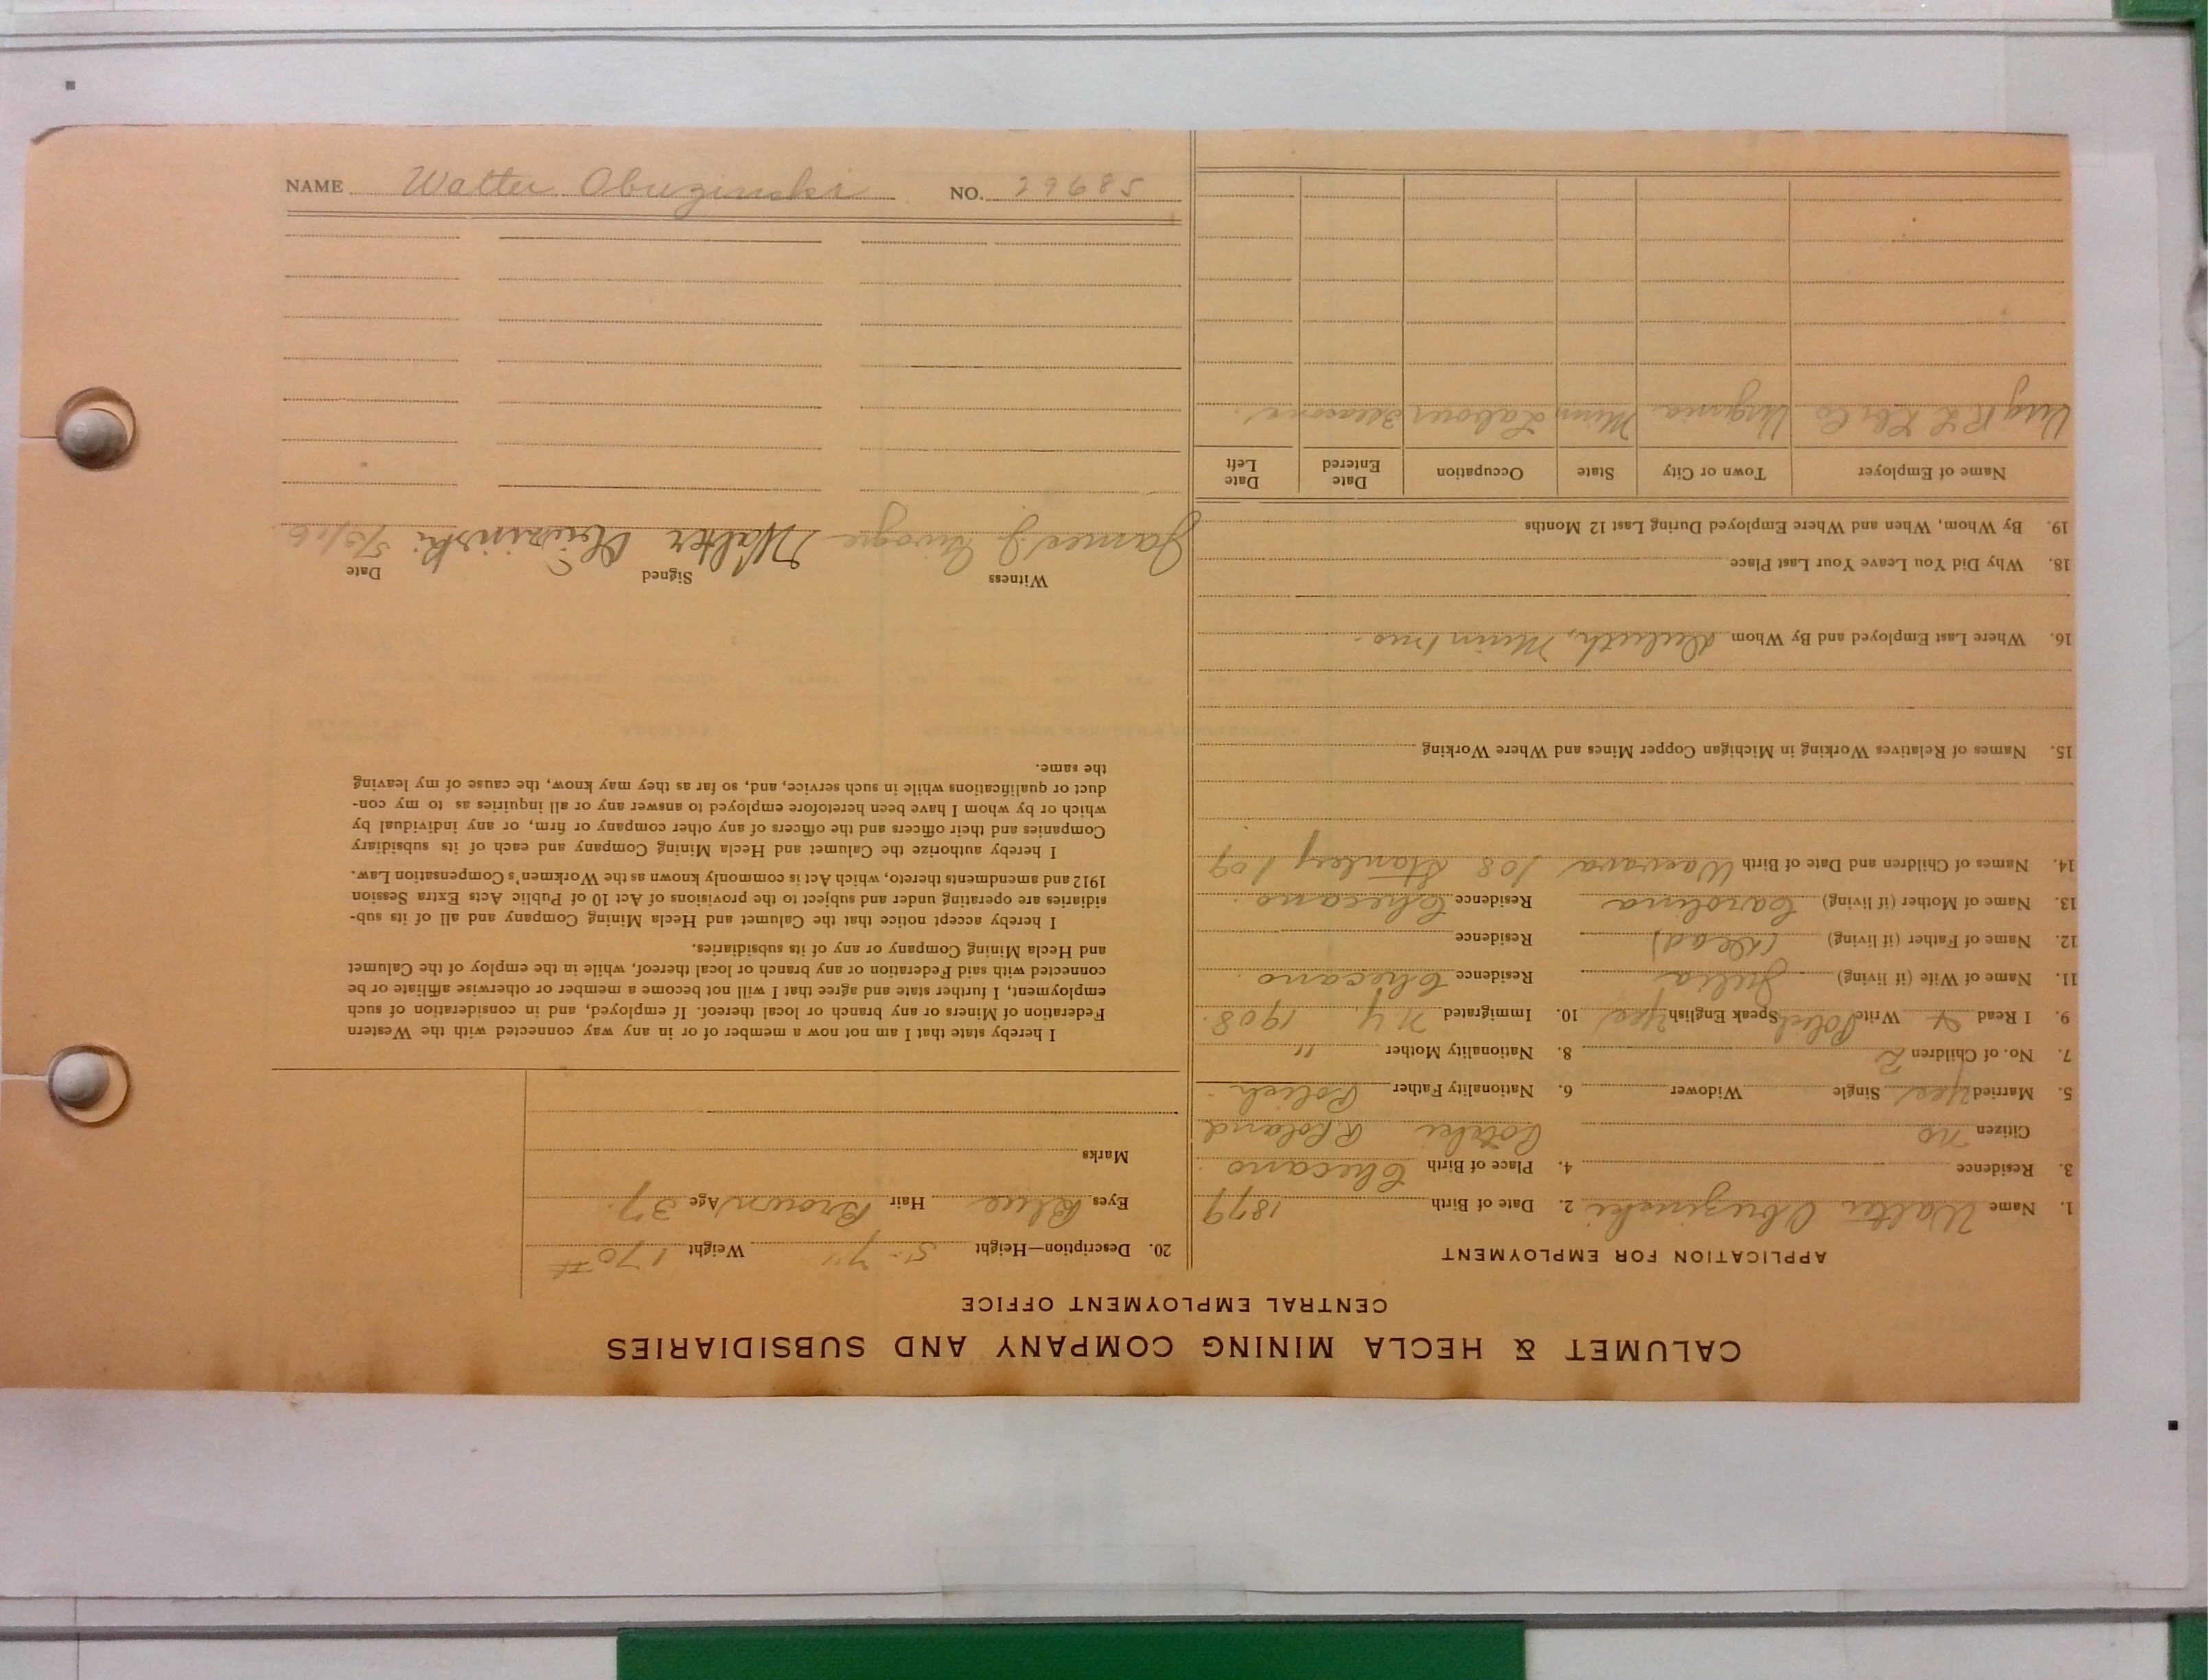 CALUMET & HECLA MINING COMPANY AND SUBSIDIARIES
CENTRAL EMPLOYMENT OFFICE
APPLICATION FOR EMPLOYMENT
1. Name Walter Obuzinski 2. Date of Birth 1879
3. Residence 4. Place of Birth Checano
Citizen no Poland
5. Married Yes Single Widower 6. Nationality Father Polish
7. No. of Children 2 8. Nationality Mother "
9. I Read & Write Polish Speak English Yes 10. Immigrated N.Y. 1908.
11. Name of Wife (if living) Julia Residence Checano.
12. Name of Father (if living) (Dead) Residence
13. Name of Mother (if living) Carolina Residence Checano.
14. Names of Children and Date of Birth 108 Stanley 109
15. Names of Relatives Working in Michigan Copper Mines and Where Working
16. Where Last Employed and By Whom Duluth, Minn 1 mo.
18. Why Did You Leave Your Last Place
19. By Whom, When and Where Employed During Last 12 Months
Name of Employer Town or City State Occupation Date Entered Date Left
Virg R L Co Virginia Minn Labour
20. Description—Height 5-7" Weight 170 #
Eyes Blue Hair Brown Age 37.
Marks
I hereby state that I am not now a member of or in any way connected with the Western
Federation of Miners or any branch or local thereof. If employed, and in consideration of such
employment, I further state and agree that I will not become a member or otherwise affiliate or be
connected with said Federation or any branch or local thereof, while in the employ of the Calumet
and Hecla Mining Company or any of its subsidiaries.
I hereby accept notice that the Calumet and Hecla Mining Company and all of its sub-
sidiaries are operating under and subject to the provisions of Act 10 of Public Acts Extra Session
1912 and amendments thereto, which Act is commonly known as the Workmen's Compensation Law.
I hereby authorize the Calumet and Hecla Mining Company and each of its subsidiary
Companies and their officers and the officers of any other company or firm, or any individual by
which or by whom I have been heretofore employed to answer any or all inquiries as to my con-
duct or qualifications while in such service, and, so far as they may know, the cause of my leaving
the same.
Witness Signed Date
James J. Walter
NAME Walter Obuzinski NO. 29685